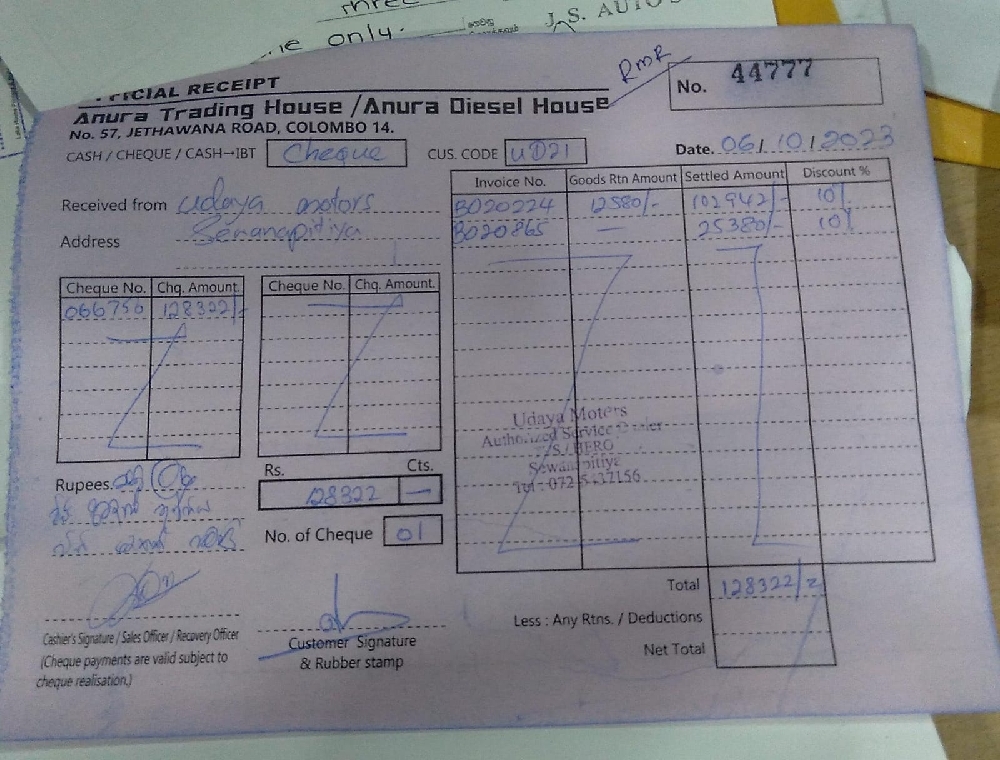 three
only.
J. S. AUTO
RMR
OFFICIAL RECEIPT
No. 44777
Anura Trading House /Anura Diesel House
No. 57, JETHAWANA ROAD, COLOMBO 14.
CASH / CHEQUE / CASH→IBT Cheque CUS. CODE UD21 Date. 06/10/2023
Received from Udaya motors
Address Senanapitiya
Invoice No. Goods Rtn Amount Settled Amount Discount %
B020224 12580/- 102942/- 10%
B020865 — 25380/- 10%
Cheque No. Chq. Amount. Cheque No. Chq. Amount.
066756 128322/-
Udaya Moters
Authorized Service Dealer
Sewanapitiya
Tel : 072 5437156
Rupees.
Rs. Cts.
128322 —
No. of Cheque 01
Total 128322/=
Less : Any Rtns. / Deductions
Net Total
Cashier's Signature / Sales Officer / Recovery Officer
(Cheque payments are valid subject to
cheque realisation.)
Customer Signature
& Rubber stamp